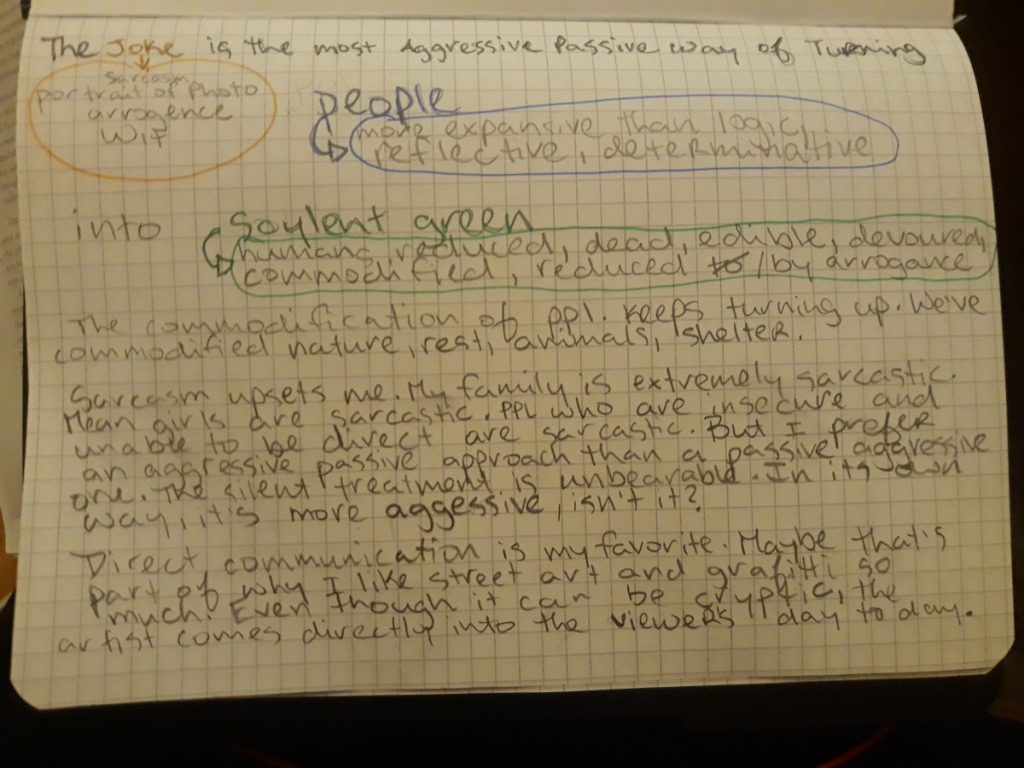 The Joke is the most Aggressive Passive Way of Turning
sarcasm
portrait of photo
arrogence
Wit
people
more expansive than logic,
reflective, determinative
into
Soylent green
humans reduced, dead, edible, devoured,
commodified, reduced to/by arrogance
The commodification of ppl. keeps turning up. We've
commodified nature, rest, animals, shelter.
Sarcasm upsets me. My family is extremely sarcastic.
Mean girls are sarcastic. PPL who are insecure and
unable to be direct are sarcastic. But I prefer
an aggressive passive approach than a passive aggressive
one. The silent treatment is unbearable. In its own
way, it's more aggessive, isn't it?
Direct communication is my favorite. Maybe that's
part of why I like street art and grafitti so
much. Even though it can be cryptic, the
artist comes directly into the viewers day to day.